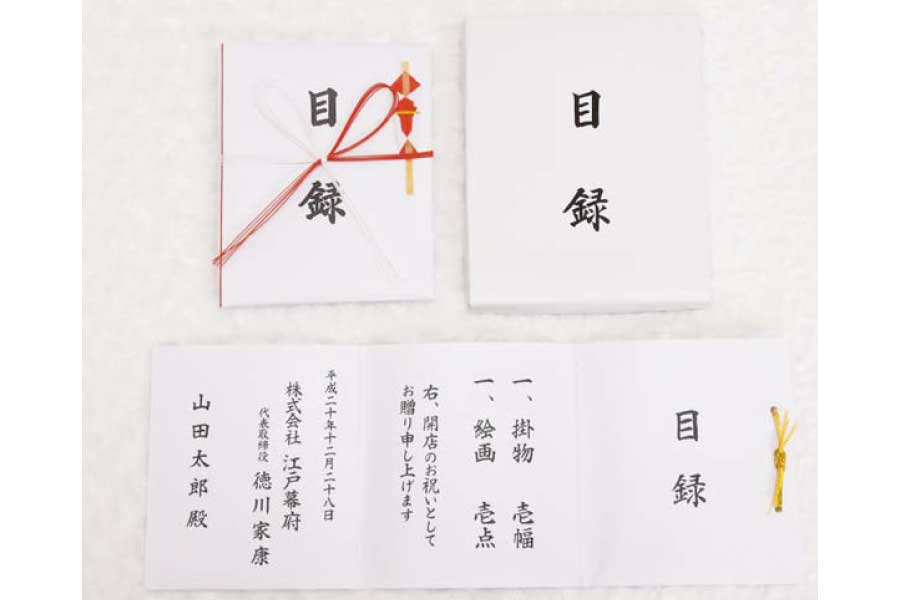 目録
目録
目録
一、掛物 壱幅
一、絵画 壱点
右、開店のお祝いとして
お贈り申し上げます
平成二十年十二月二十八日
株式会社 江戸幕府
代表取締役 徳川家康
山田太郎殿